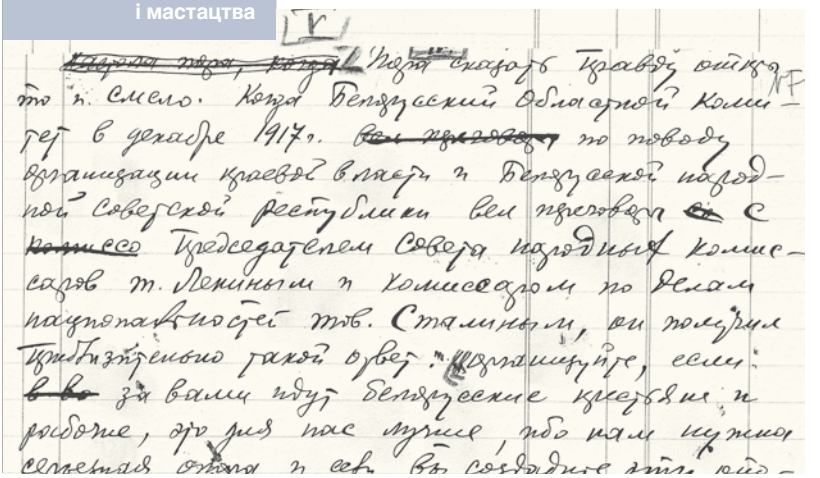 і мастацтва
V
Настала пора, когда Пора сказать правду откры
то и смело. Когда Белорусский Областной Коми-
тет в декабре 1917г. вел переговоры по поводу
организации краевой власти и Белорусской народ-
ной советской республики вел переговоры со с
комиссо Председателем Совета народных комис-
саров т. Лениным и комиссаром по делам
национальностей тов. Сталиным, он получил
приблизительно такой ответ: "организуйте, если
в во за вами идут белорусские крестьяне и
рабочие, это для нас лучше, ибо нам нужна
серьезная опора и если вы создадите эту опо-